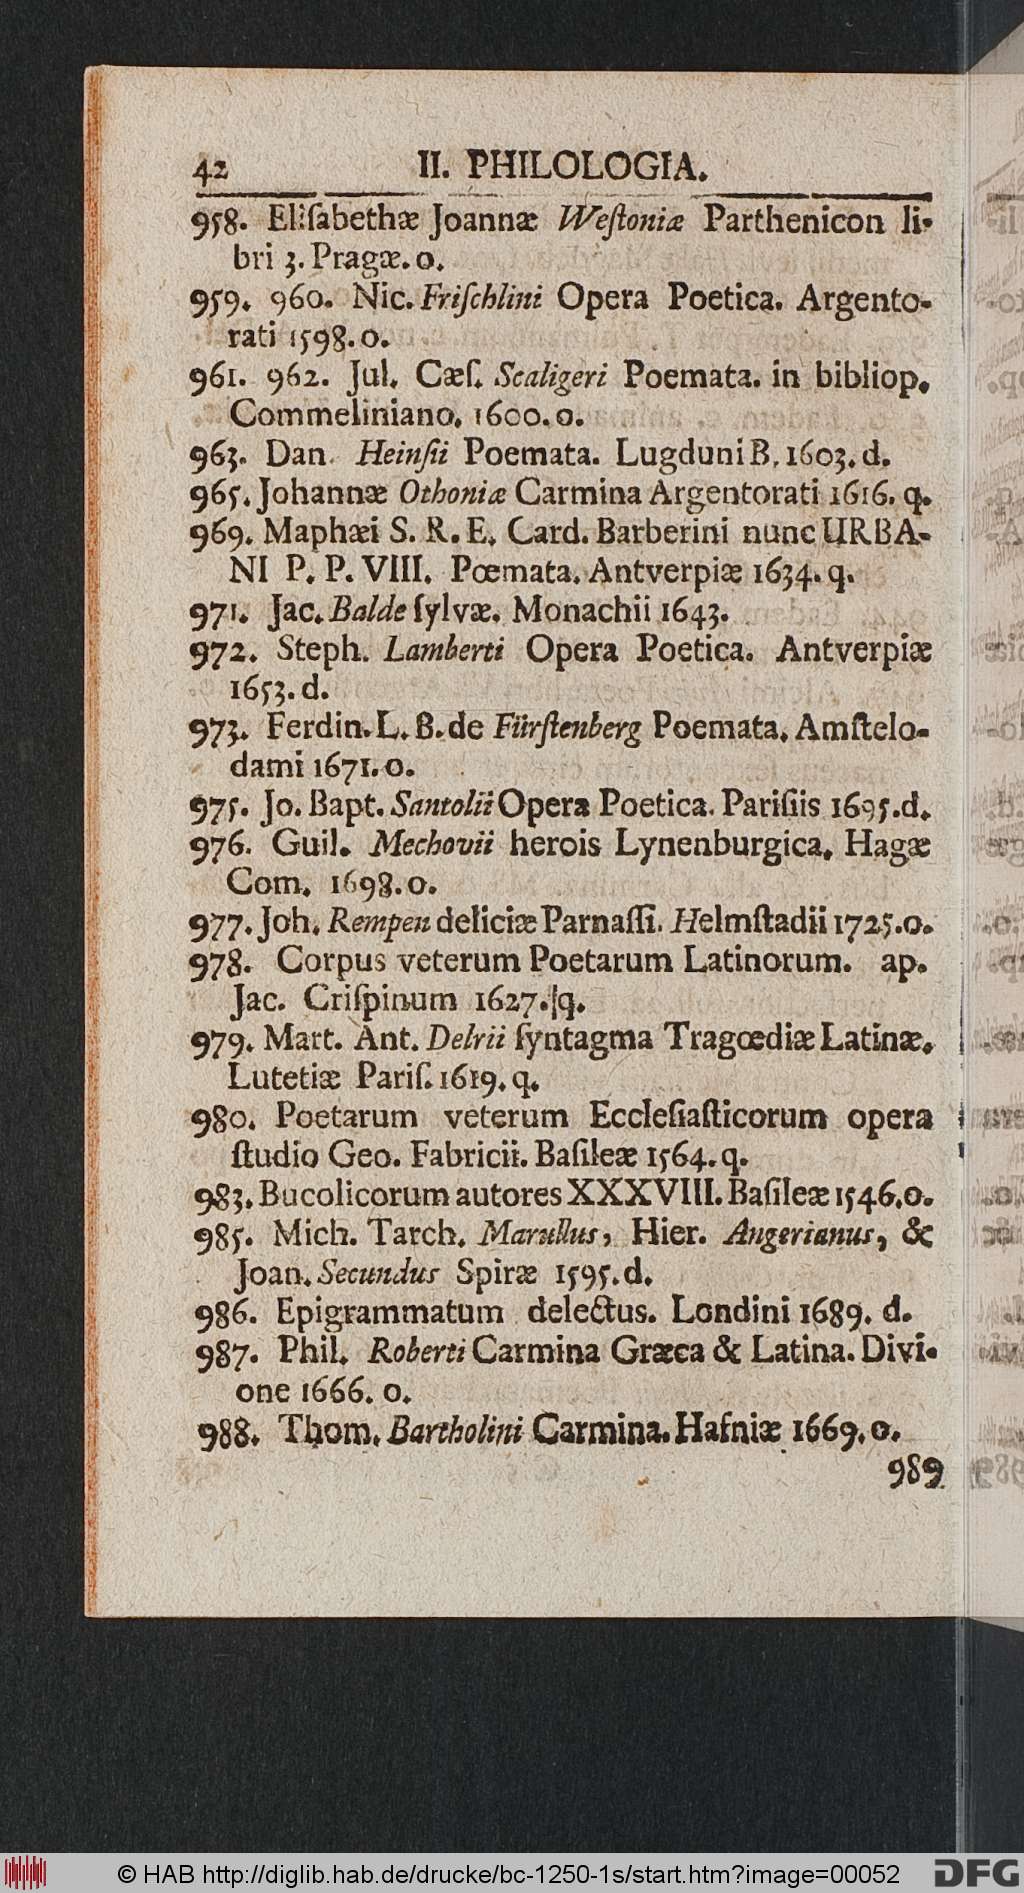 42 II. PHILOLOGIA.
958. Eliſabethæ Joannæ Weſtoniæ Parthenicon li-
bri 3. Pragæ. o.
959. 960. Nic. Friſchlini Opera Poetica. Argento-
rati 1598. o.
961. 962. Jul. Cæſ. Scaligeri Poemata. in bibliop.
Commeliniano. 1600. o.
963. Dan. Heinſii Poemata. Lugduni B. 1603. d.
965. Johannæ Othoniæ Carmina Argentorati 1616. q.
969. Maphæi S. R. E. Card. Barberini nunc URBA-
NI P. P. VIII. Pœmata. Antverpiæ 1634. q.
971. Jac. Balde ſylvæ. Monachii 1643.
972. Steph. Lamberti Opera Poetica. Antverpiæ
1653. d.
973. Ferdin. L. B. de Fürſtenberg Poemata. Amſtelo-
dami 1671. o.
975. Jo. Bapt. Santolii Opera Poetica. Pariſiis 1695. d.
976. Guil. Mechovii herois Lynenburgica. Hagæ
Com. 1698. o.
977. Joh. Rempen deliciæ Parnaſſi. Helmſtadii 1725. o.
978. Corpus veterum Poetarum Latinorum. ap.
Jac. Criſpinum 1627. q.
979. Mart. Ant. Delrii ſyntagma Tragœdiæ Latinæ.
Lutetiæ Pariſ. 1619. q.
980. Poetarum veterum Eccleſiaſticorum opera
ſtudio Geo. Fabricii. Baſileæ 1564. q.
983. Bucolicorum autores XXXVIII. Baſileæ 1546. o.
985. Mich. Tarch. Marullus, Hier. Angerianus, &
Joan. Secundus Spiræ 1595. d.
986. Epigrammatum delectus. Londini 1689. d.
987. Phil. Roberti Carmina Græca & Latina. Divi-
one 1666. o.
988. Thom. Bartholini Carmina. Hafniæ 1669. o.
989
© HAB http://diglib.hab.de/drucke/bc-1250-1s/start.htm?image=00052 DFG